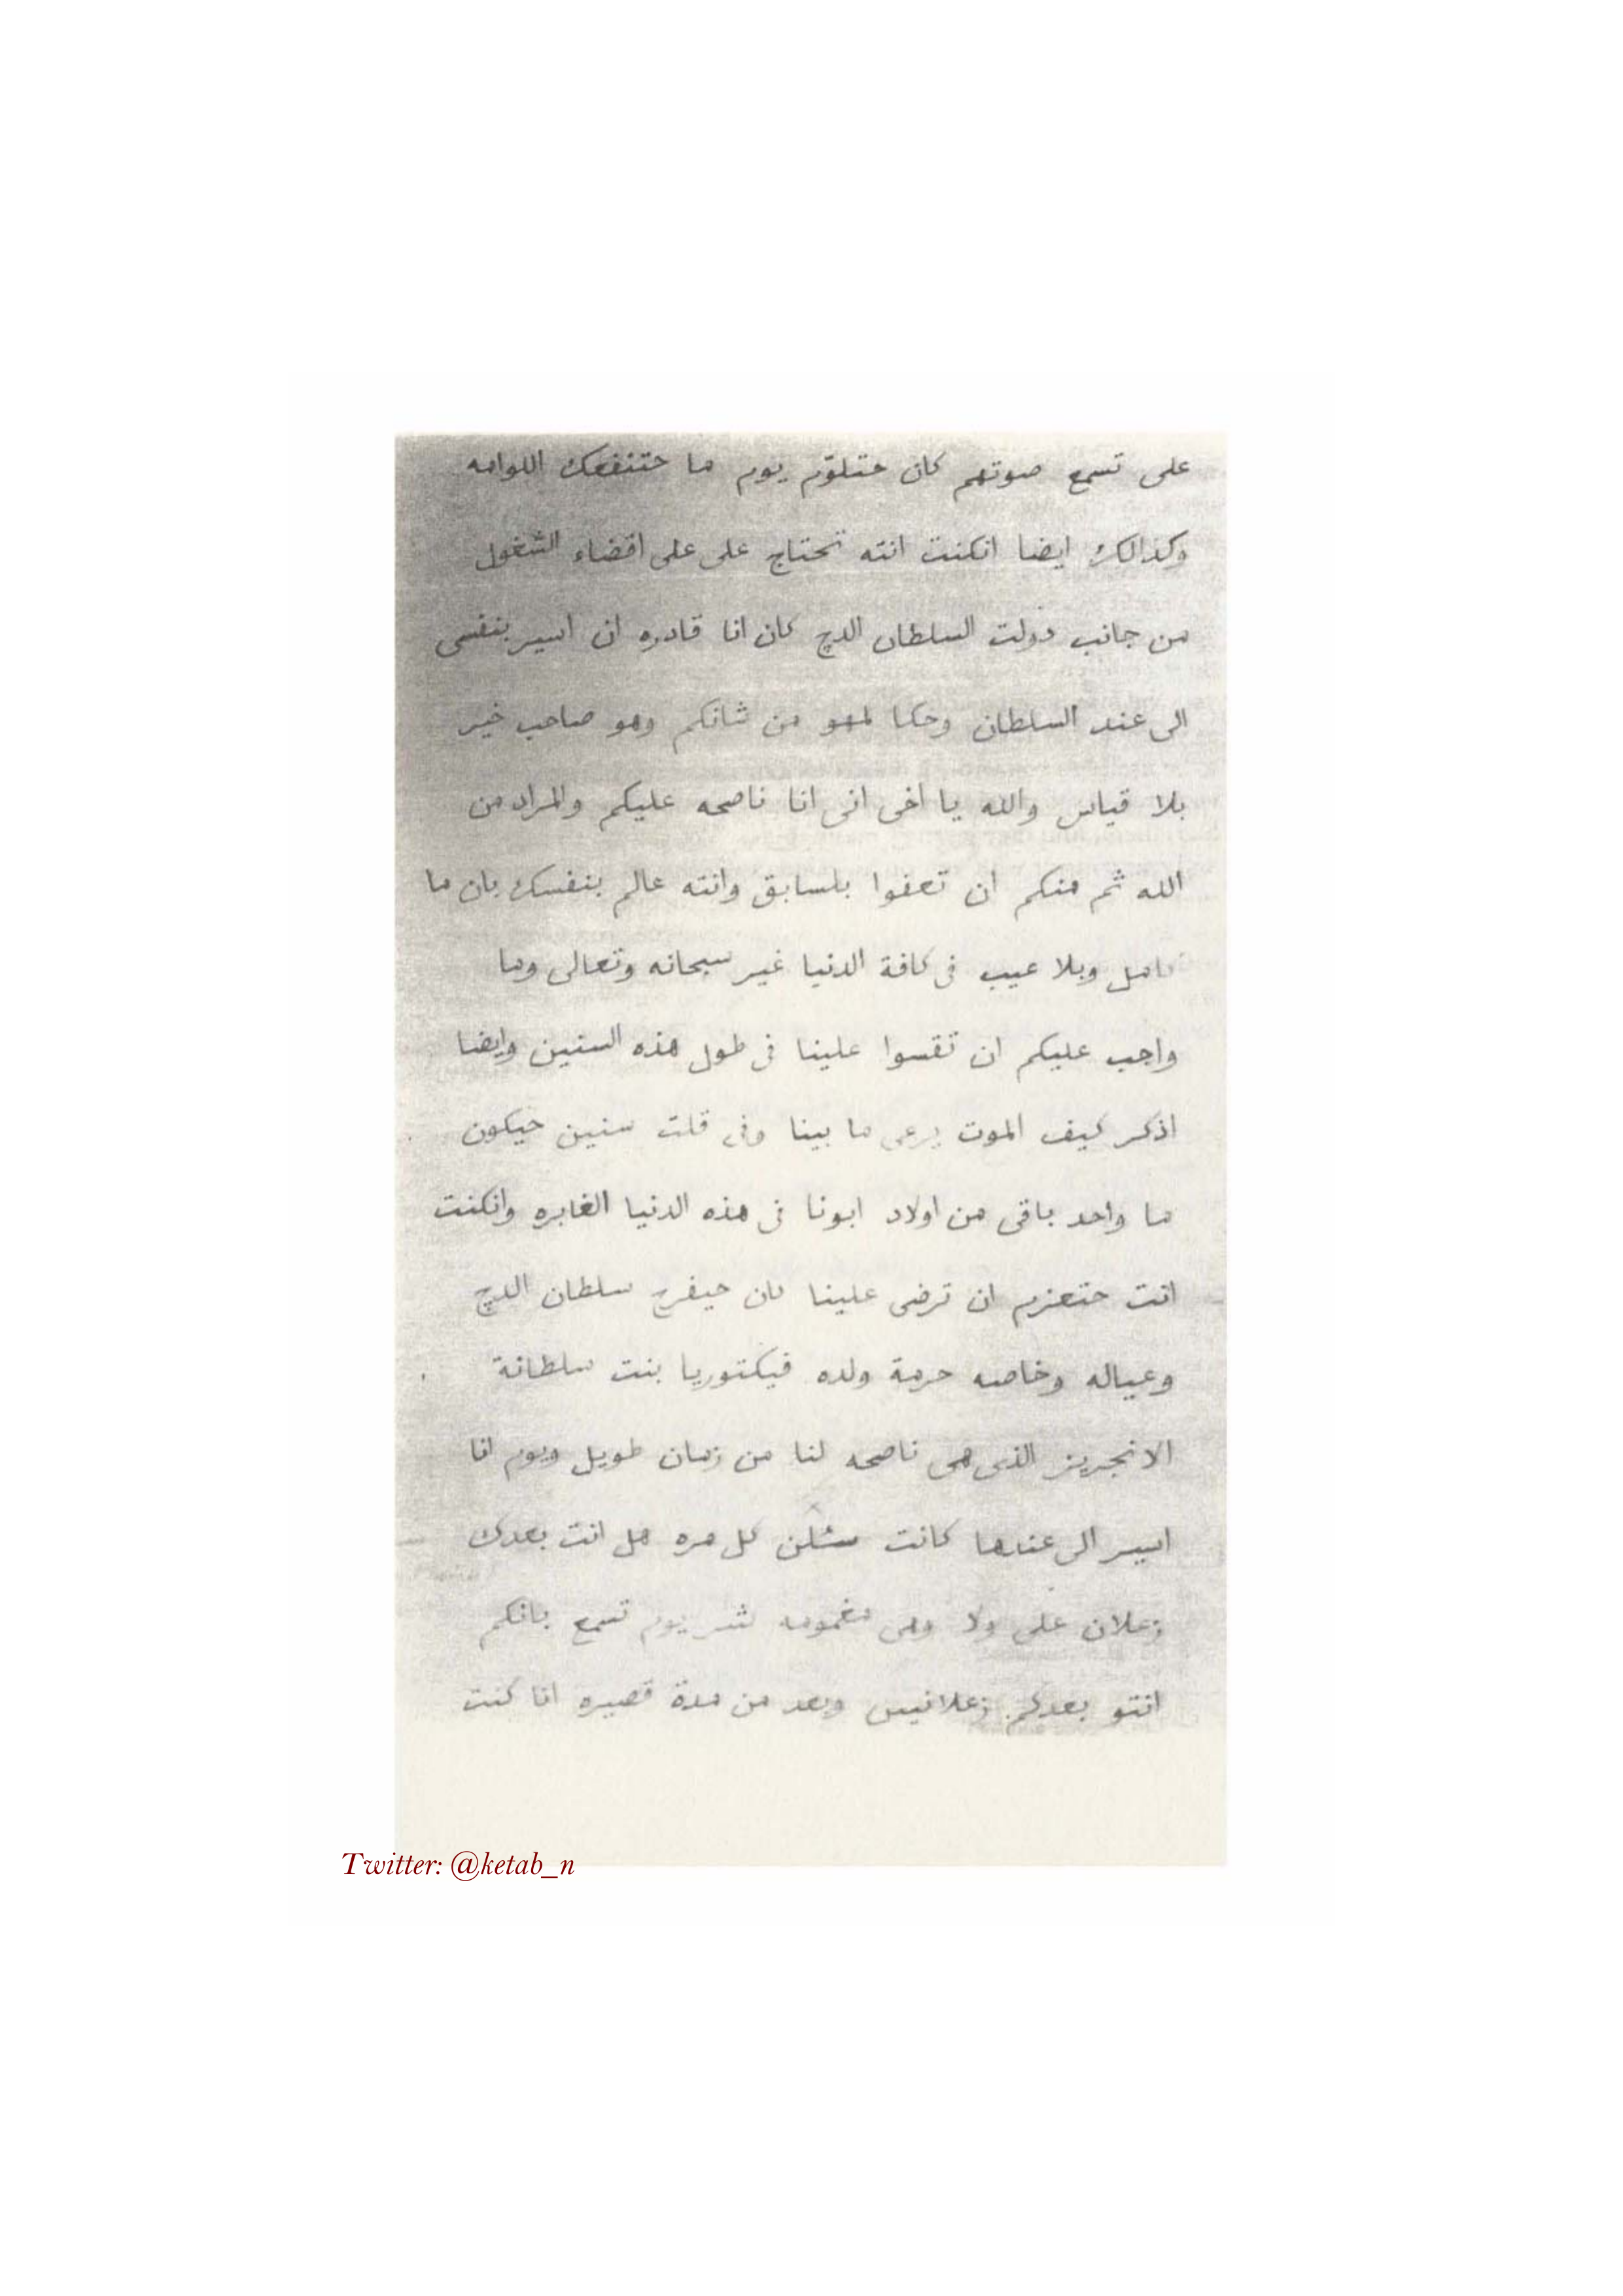 على تسمع صوتهم كان حتلوّم يوم ما حتنفعك اللوامه
وكذالك ايضا انكنت انته تحتاج على على اقضاء الشغول
من جانب دولت السلطان الدچ كان انا قادره ان اسير بنفسى
الى عند السلطان وحكا لهو من شانكم وهو صاحب خير
بلا قياس والله يا اخى انى انا ناصحه عليكم والمراد من
الله ثم منكم ان تعفوا بلسابق وانته عالم بنفسك بان ما
كامل وبلا عيب فى كافة الدنيا غير سبحانه وتعالى وما
واجب عليكم ان تقسوا علينا فى طول هذه السنين وايضا
اذكر كيف الموت يرعى ما بينا وفى قلت سنين حيكون
ما واحد باقى من اولاد ابونا فى هذه الدنيا الغابره وانكنت
انت حتعزم ان ترضى علينا كان حيفرح سلطان الدچ
وعياله وخاصه حرمة ولده فيكتوريا بنت سلطانة
الانجريز الذى هى ناصحه لنا من زمان طويل ويوم انا
اسير الى عندها كانت كل مره هل انت بعدك
زعلان على ولا وهى مغمومه يوم تسمع بانكم
انتو بعدكم زعلانين وبعد من مدة قصيره انا كنت
Twitter: @ketab_n